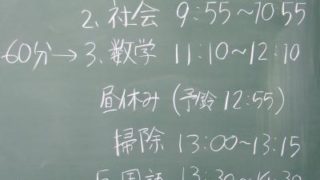 2. 社会 9:55~10 55
60分→3. 数学 11:10~12:10
昼休み (予鈴 12:55)
掃除 13:00~13:15
5. 国語 13:30~14:30